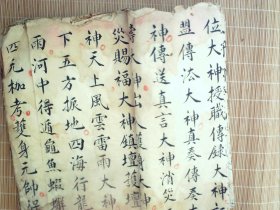 位大神授職傳錄大神
盟傳法大神真奏傳奏大
神傳送真言大神消災
災賜福大神鎮壇護壇
神天上風雲雷雨大神
下五方振地四海行龍
雨河中得道龜魚蝦
四元枷考護身元帥